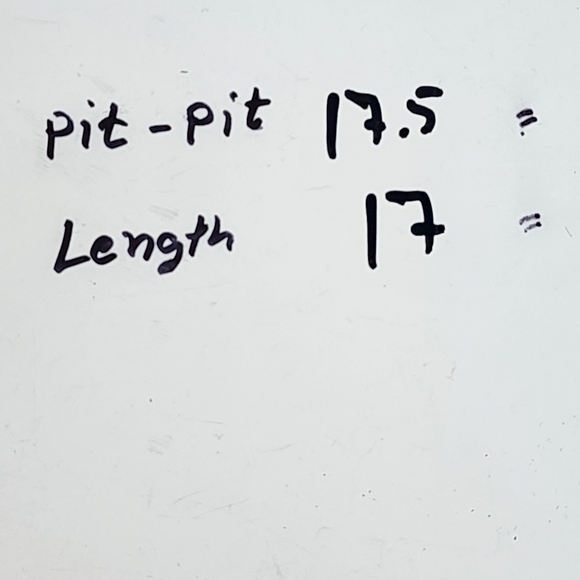 Pit - Pit 17.5 =
Length 17 =